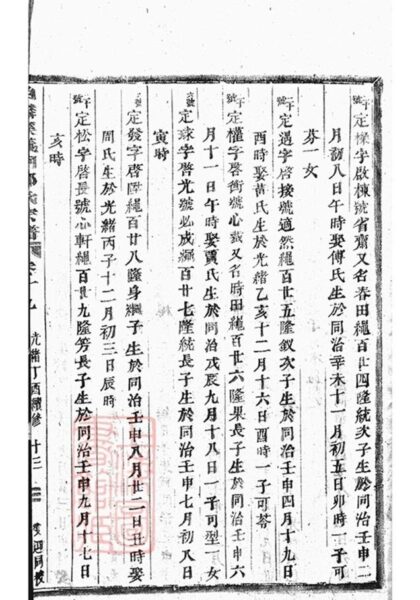 定樑字啓棟號省齋又名春田繩百廿四隆統次子生於同治壬申二
月初八日午時娶傅氏生於同治辛未十一月初五日卯時一子可
芬一女
定遇字啓接號適然繩百廿五隆釵次子生於同治壬申四月十九日
酉時娶黃氏生於光緒乙亥十二月十六日酉時一子可荅
定權字啓衡號心葴又名時田繩百廿六隆果長子生於同治壬申六
月十一日午時娶賈氏生於同治戊辰九月十八日一子可型一女
定球字啓光號必成繩百廿七隆統長子生於同治壬申七月初八日
寅時
定發字啓陞繩百廿八隆身繼子生於同治壬申八月廿二日丑時娶
周氏生於光緒丙子十二月初三日辰時
定松字啓長號心軒繩百廿九隆芳長子生於同治壬申九月十七日
亥時
光緒丁酉續修 十三